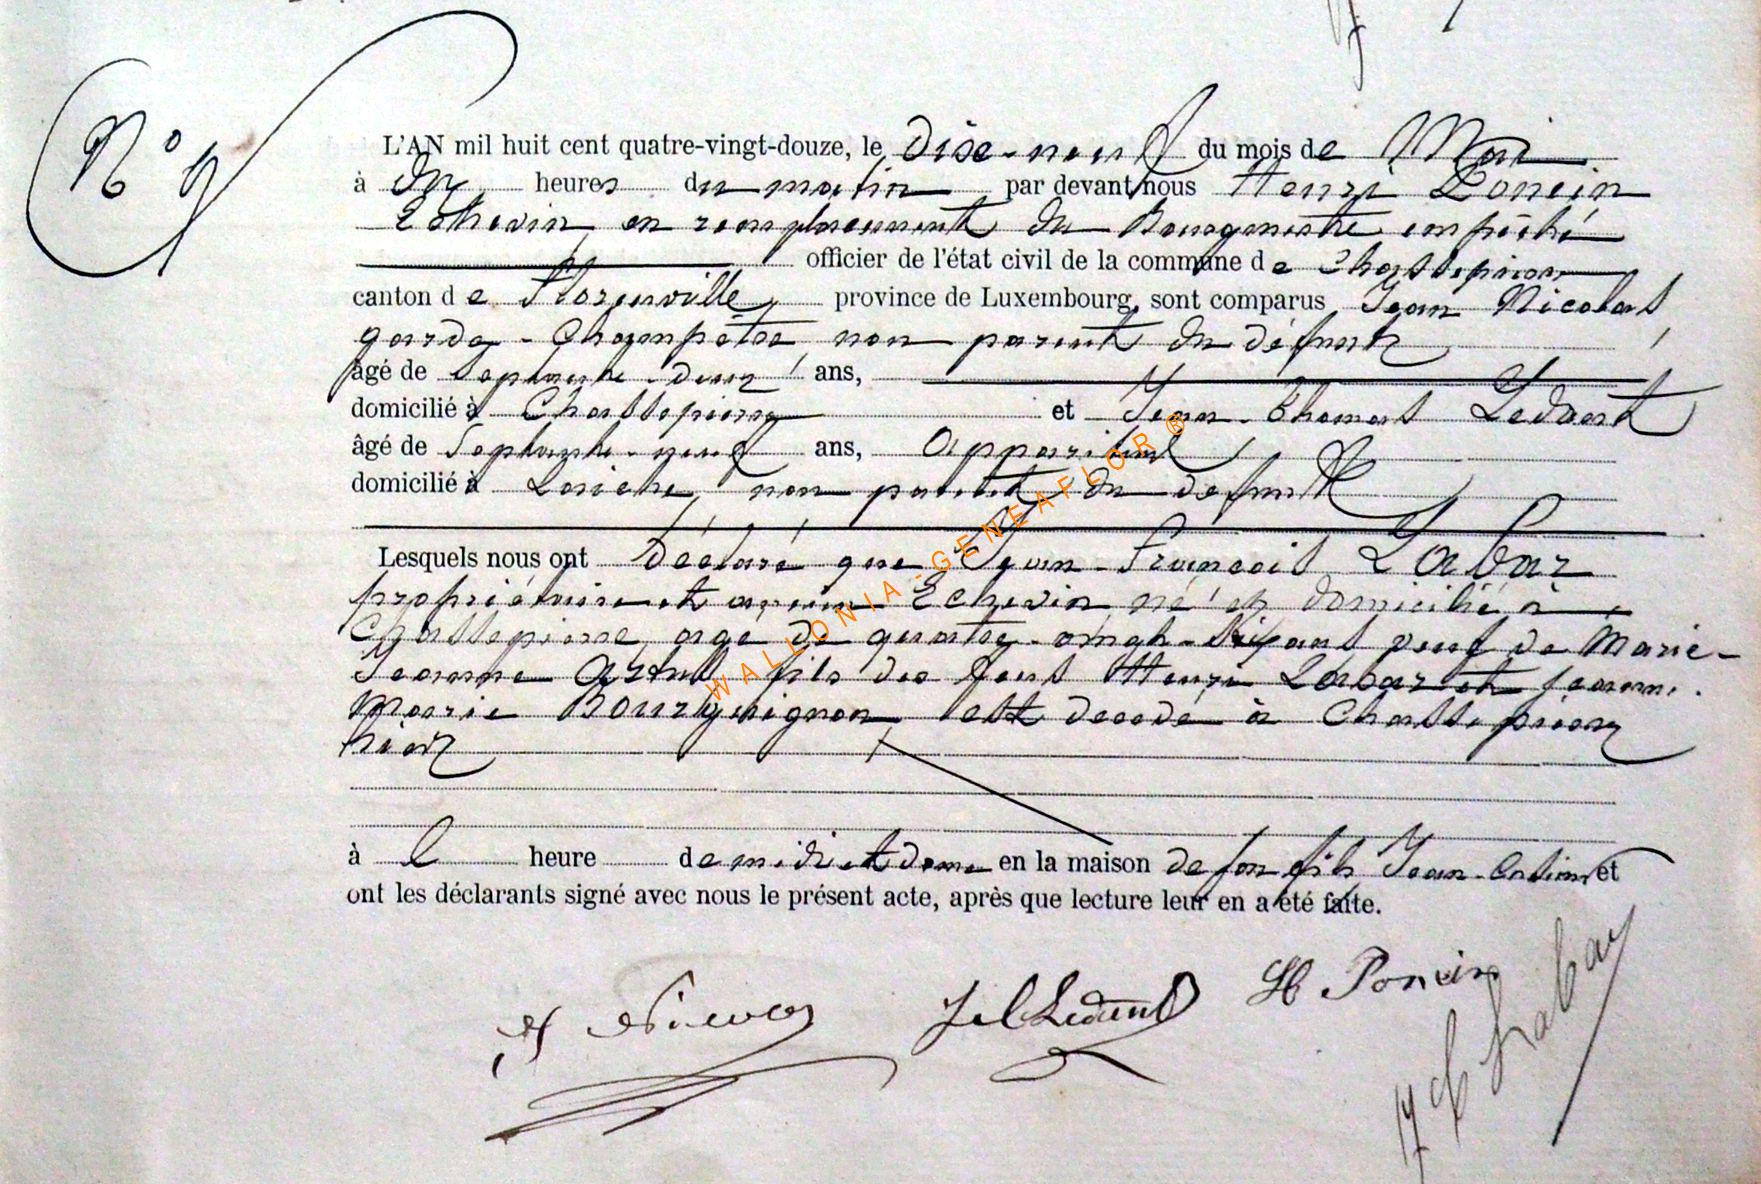 N° 9
L'AN mil huit cent quatre-vingt-douze, le dixe-neuf du mois de Mai
à dix heures du matin par devant nous Henri Poncin
Echevin, en remplacement du Bourgmestre empêché
officier de l'état civil de la commune de Chassepierre
canton de Florenville, province de Luxembourg, sont comparus Jean Nicolas,
garde-Champêtre, non parent du défunt
âgé de Septante-deux ans,
domicilié à Chassepierre et Jean-Thomas Ledant
âgé de Septante-neuf ans, Appariteur,
domicilié à Laiche, non parent du defunt
Lesquels nous ont déclaré que Jean-François Labar
propriétaire et ancien Echevin né et domicilié à
Chassepierre, agé de quatre-vingt- ans veuf de Marie-
Jeanne fils des feus Henri Labar et Jeanne-
Marie Bourguignon, est decedé à Chassepierre
hier
à l heure de midi et demie en la maison de son fils Jean- et
ont les déclarants signé avec nous le présent acte, après que lecture leur en a été faite.
J Nicolas J T Ledant H Poncin
Labar
WALLONIA-GENEAFLOR®